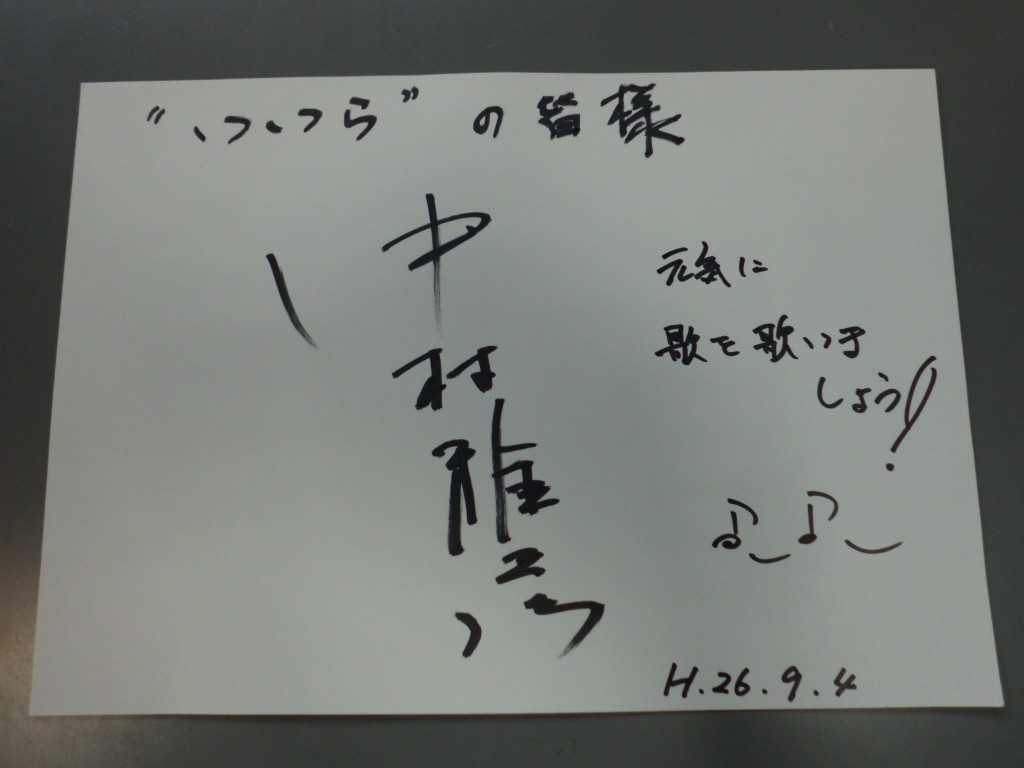 “いいら”の皆様
中村雅俊
元気に
歌を歌いま
しょう!
♪ ♪
H.26.9.4